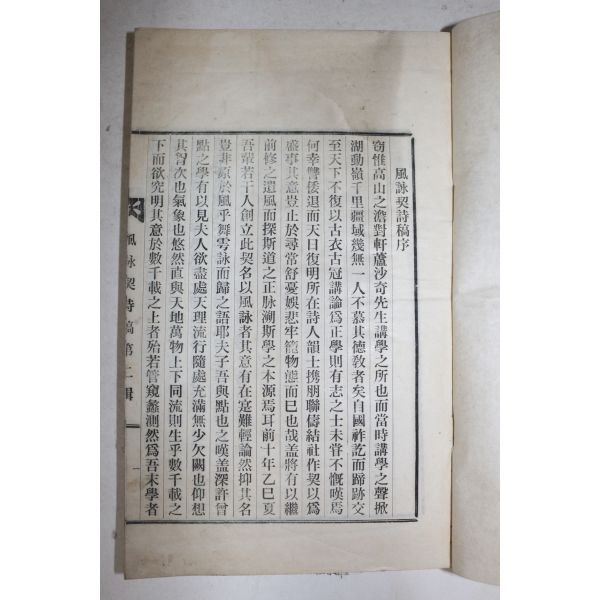 風詠契詩稿序
窃惟高山之澹對軒蘆沙奇先生講學之所也而當時講學之聲掀
湖動嶺千里疆域幾無一人不慕其德敎者矣自國祚訖而歸跡交
至天下不復以古衣古冠講論爲正學則有志之士未甞不慨嘆焉
何幸讐倭退而天日復明所在詩人韻士携朋聯儔結社作契以爲
盛事其意豈止於尋常舒憂娛悲牢籠物態而已也哉盖將有以繼
前修之遺風而探斯道之正脉溯斯學之本源焉耳前十年乙巳夏
吾輩若干人創立此契名以風詠者其意有在寔難輕論然抑其名
豈非原於風乎舞雩詠而歸之語耶夫子吾與點也之嘆盖深許曾
點之學有以見夫人欲盡處天理流行隨處充滿無少欠闕也仰想
其智次也氣象也悠然直與天地萬物上下同流則生乎數千載之
下而欲究明其意於數千載之上者殆若管窺蠡測然爲吾末學者
風詠契詩稿第二輯
一